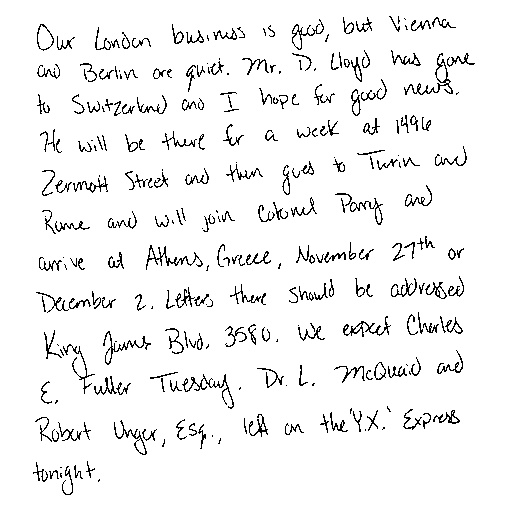 Our London business is good, but Vienna
and Berlin are quiet. Mr. D. Lloyd has gone
to Switzerland and I hope for good news.
He will be there for a week at 1496
Zermott Street and then goes to Turin and
Rome and will join Colonel Parry and
arrive at Athens, Greece, November 27th or
December 2. Letters there should be addressed
King James Blvd. 3580. We expect Charles
E. Fuller Tuesday. Dr. L. McQuaid and
Robert Unger, Esq., left on the 'Y.X.' Express
tonight.